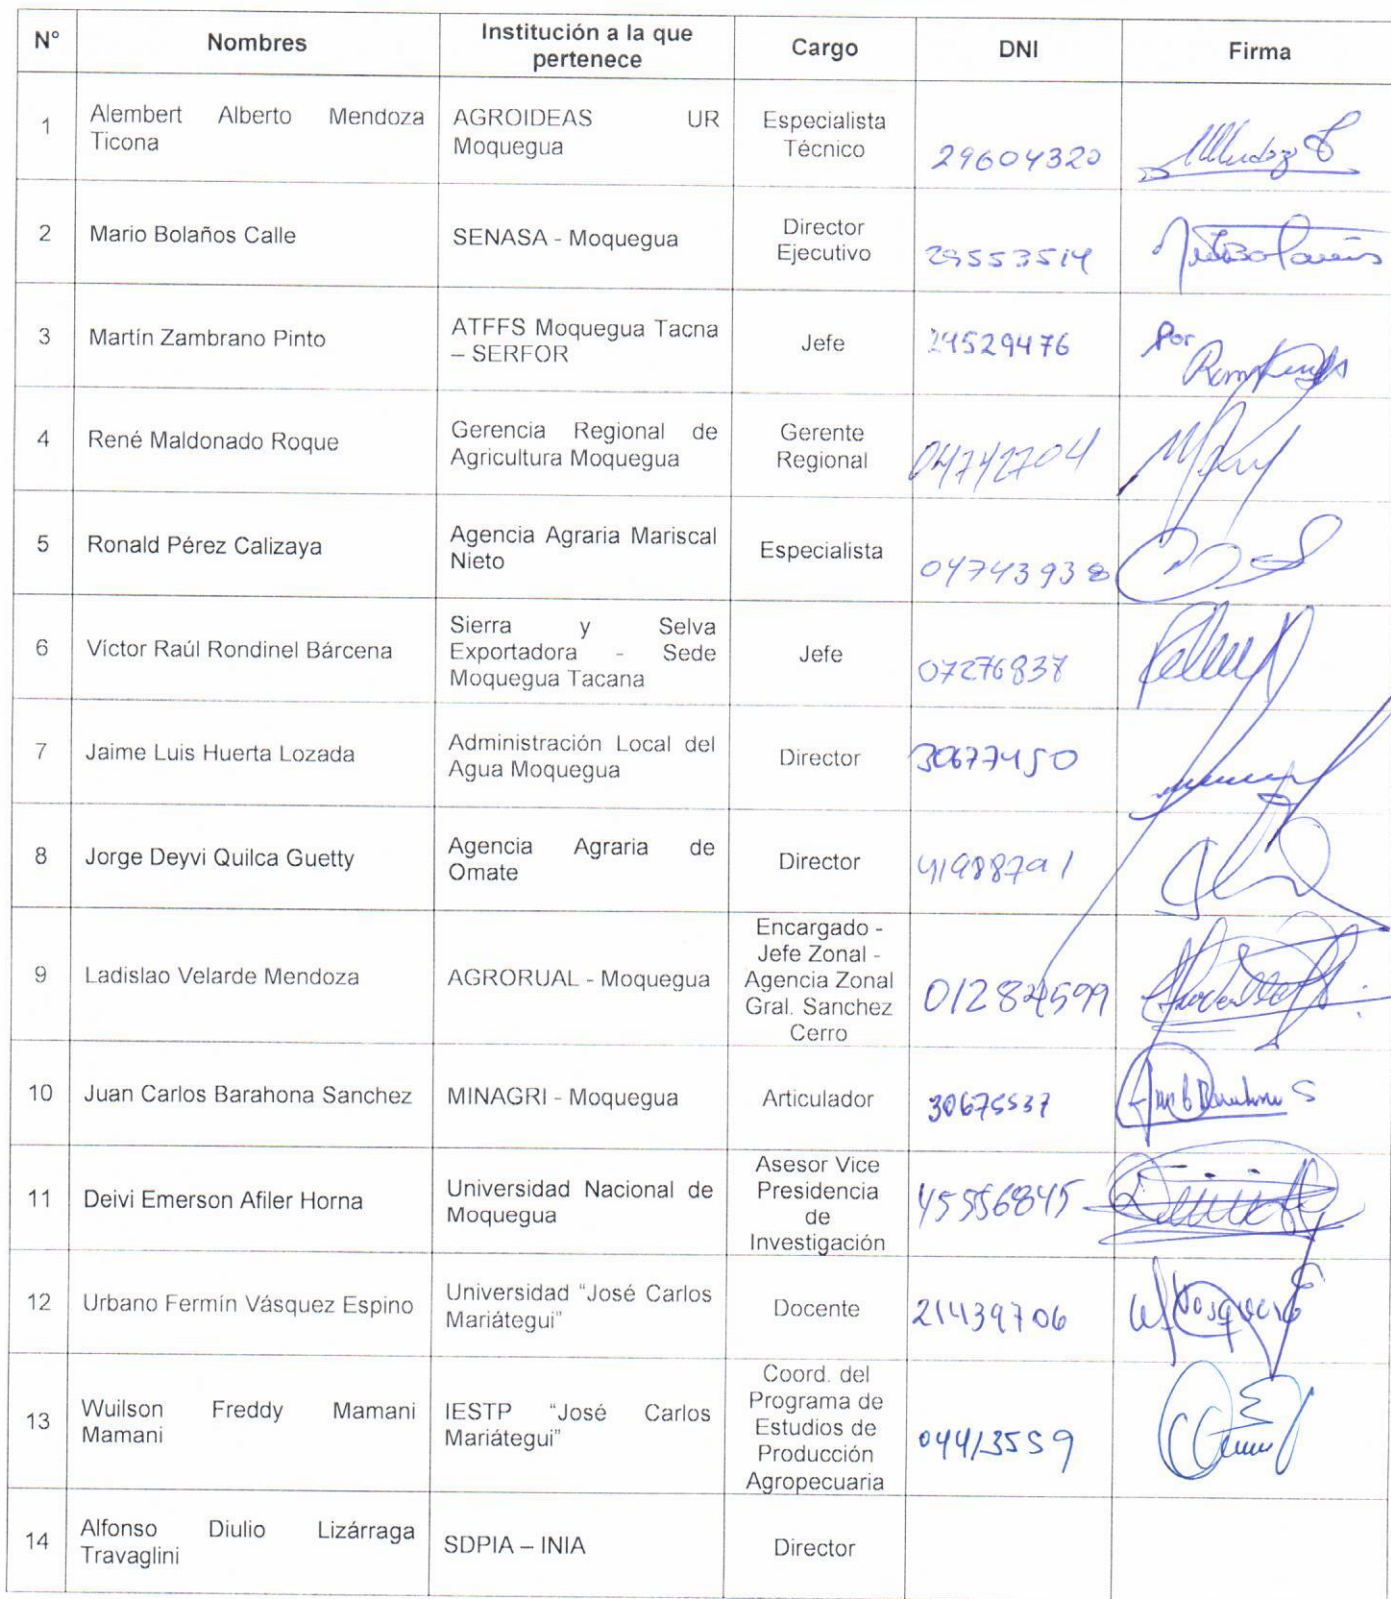 N° Nombres Institución a la que pertenece Cargo DNI Firma
1 Alembert Alberto Mendoza Ticona AGROIDEAS UR Moquegua Especialista Técnico 29604320
2 Mario Bolaños Calle SENASA - Moquegua Director Ejecutivo 29553514
3 Martín Zambrano Pinto ATFFS Moquegua Tacna – SERFOR Jefe 29529476 Por
4 René Maldonado Roque Gerencia Regional de Agricultura Moquegua Gerente Regional 04742704
5 Ronald Pérez Calizaya Agencia Agraria Mariscal Nieto Especialista 04743938
6 Víctor Raúl Rondinel Bárcena Sierra y Selva Exportadora - Sede Moquegua Tacana Jefe 07276837
7 Jaime Luis Huerta Lozada Administración Local del Agua Moquegua Director 30677450
8 Jorge Deyvi Quilca Guetty Agencia Agraria de Omate Director 41988791
9 Ladislao Velarde Mendoza AGRORUAL - Moquegua Encargado - Jefe Zonal - Agencia Zonal Gral. Sanchez Cerro
10 Juan Carlos Barahona Sanchez MINAGRI - Moquegua Articulador 30675537
11 Deivi Emerson Afiler Horna Universidad Nacional de Moquegua Asesor Vice Presidencia de Investigación 45556845
12 Urbano Fermín Vásquez Espino Universidad “José Carlos Mariátegui” Docente 21439706
13 Wuilson Freddy Mamani Mamani IESTP “José Carlos Mariátegui” Coord. del Programa de Estudios de Producción Agropecuaria 04413559
14 Alfonso Diulio Lizárraga Travaglini SDPIA – INIA Director